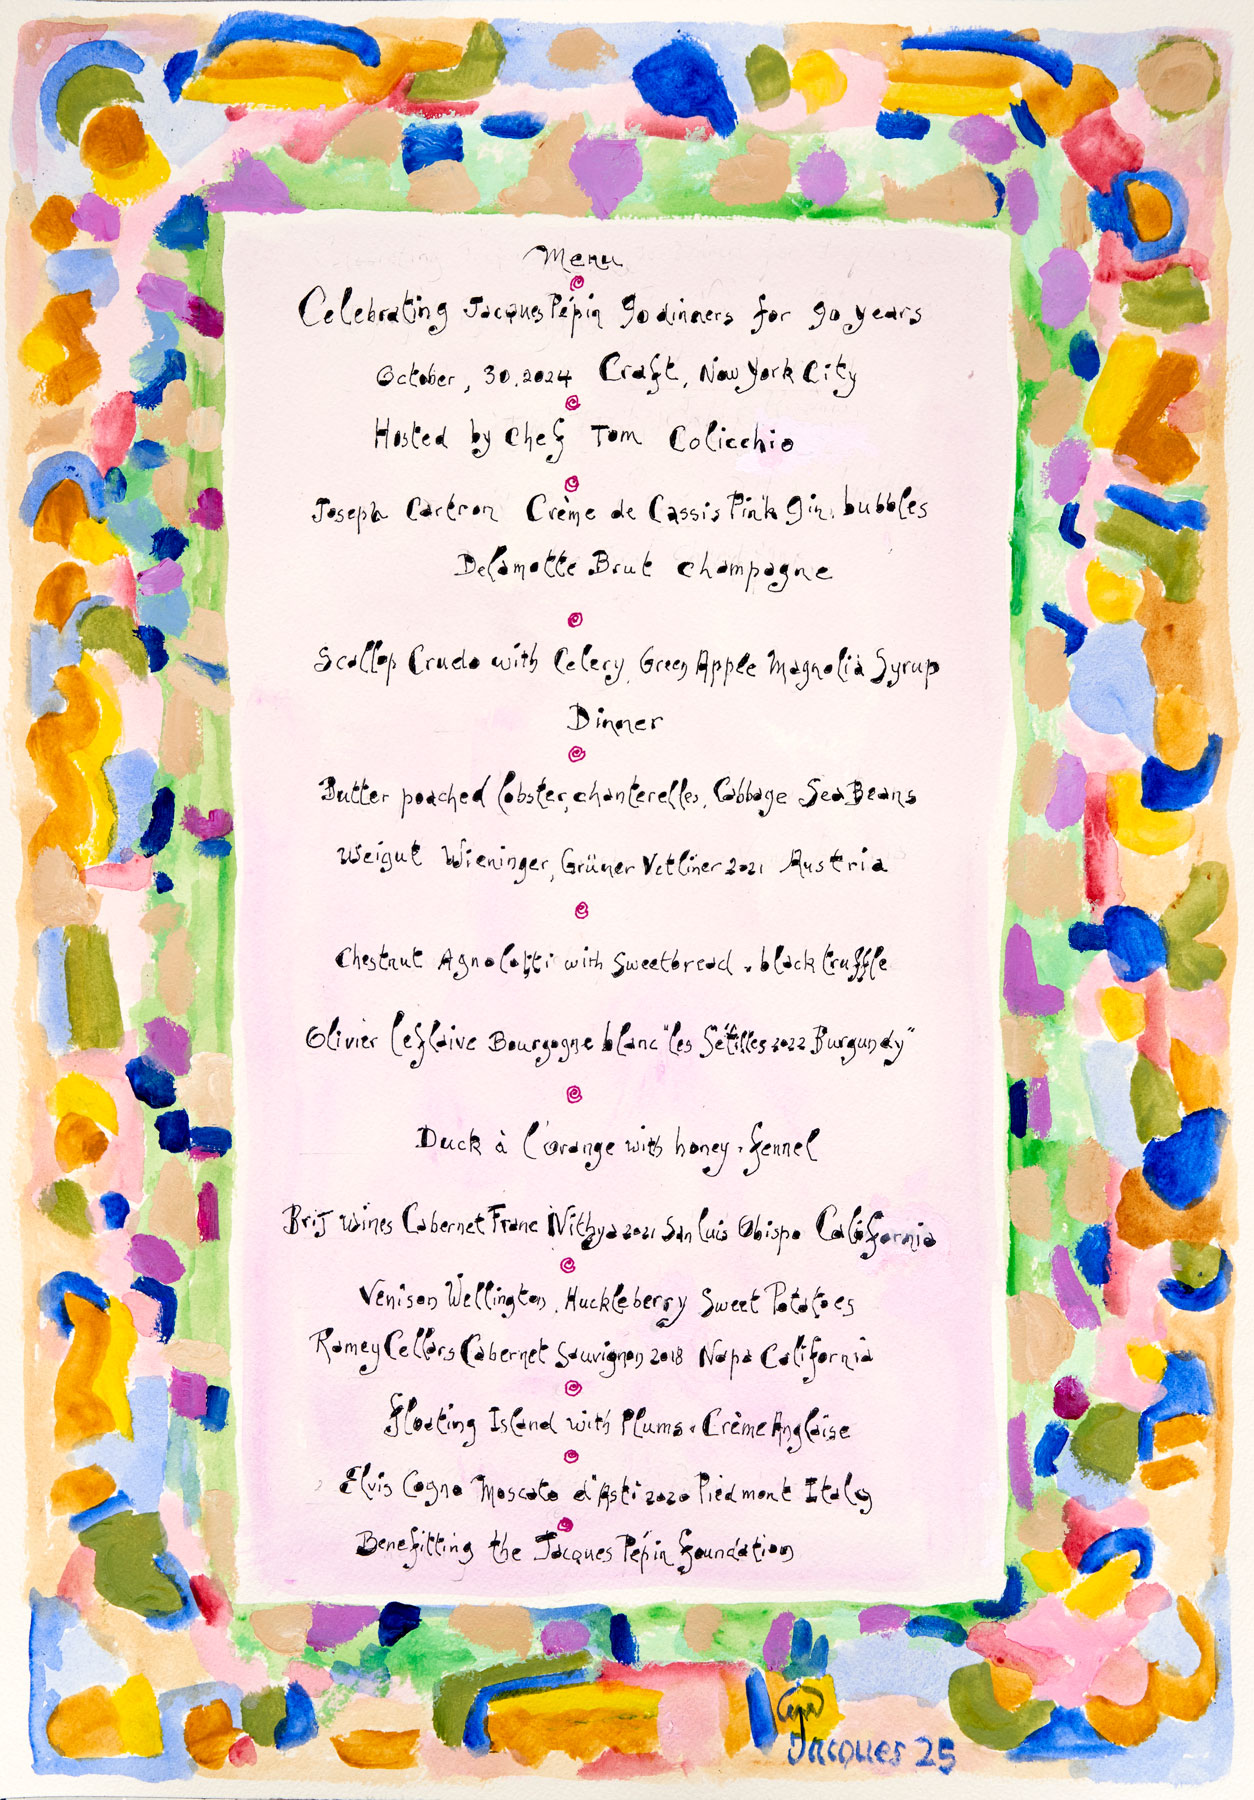 Menu
Celebrating Jacques Pépin 90 dinners for 90 years
October, 30.2024 Craft, New York City
Hosted by Chef Tom Colicchio
Joseph Cartron Crème de Cassis Pink Gin. bubbles
Delamotte Brut champagne
Scallop Crudo with Celery, Green Apple Magnolia Syrup
Dinner
Butter poached lobster, chanterelles, Cabbage Sea Beans
Weigut Wieninger, Grüner Vetliner 2021 Austria
Chestnut Agnolotti with Sweetbread . black truffle
Olivier leflaive Bourgogne blanc "les Sétilles 2022 Burgundy"
Duck à l'orange with honey . fennel
Brij wines Cabernet Franc Nithya 2021 San Luis Obispo California
Venison Wellington, Huckleberry Sweet Potatoes
Ramey Cellars Cabernet Sauvignon 2018 Napa California
Floating Island with Plums . Crème Anglaise
Elvis Cogno Moscato d'Asti 2020 Piedmont Italy
Benefitting the Jacques Pépin foundation
Jacques 25